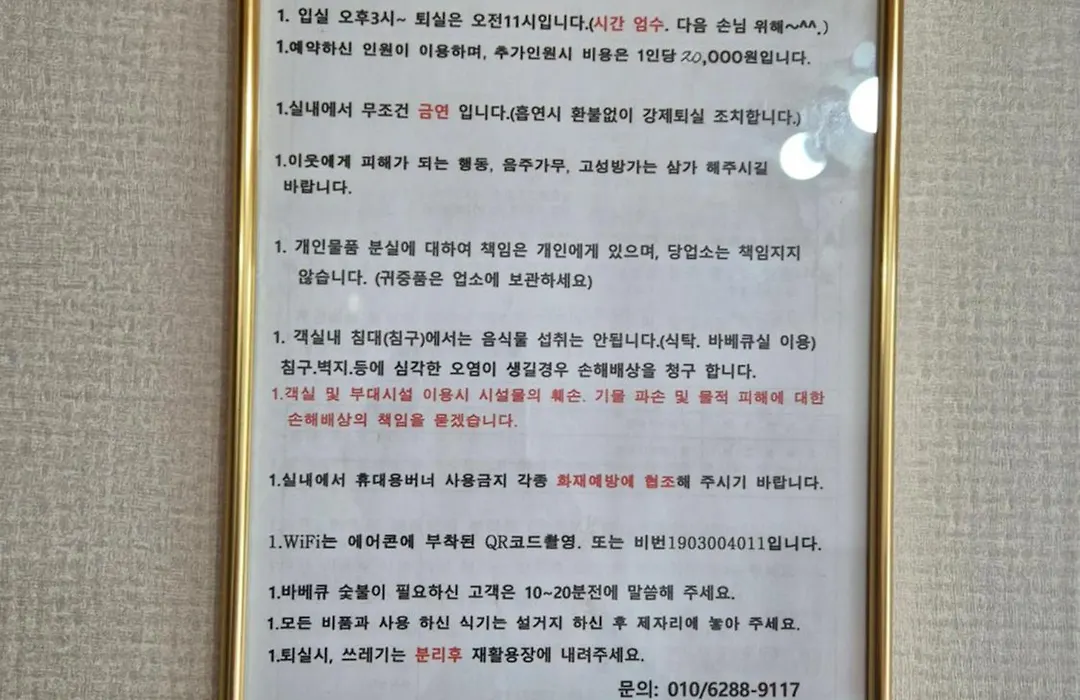 1. 입실 오후3시~ 퇴실은 오전11시입니다.(시간 엄수. 다음 손님 위해~^^.)
1.예약하신 인원이 이용하며, 추가인원시 비용은 1인당 20,000원입니다.
1.실내에서 무조건 금연 입니다.(흡연시 환불없이 강제퇴실 조치합니다.)
1.이웃에게 피해가 되는 행동, 음주가무, 고성방가는 삼가 해주시길
바랍니다.
1. 개인물품 분실에 대하여 책임은 개인에게 있으며, 당업소는 책임지지
않습니다. (귀중품은 업소에 보관하세요)
1. 객실내 침대(침구)에서는 음식물 섭취는 안됩니다.(식탁. 바베큐실 이용)
침구.벽지.등에 심각한 오염이 생길경우 손해배상을 청구 합니다.
1.객실 및 부대시설 이용시 시설물의 훼손. 기물 파손 및 물적 피해에 대한
손해배상의 책임을 묻겠습니다.
1.실내에서 휴대용버너 사용금지 각종 화재예방에 협조해 주시기 바랍니다.
1.WiFi는 에어콘에 부착된 QR코드촬영. 또는 비번1903004011입니다.
1.바베큐 숯불이 필요하신 고객은 10~20분전에 말씀해 주세요.
1.모든 비품과 사용 하신 식기는 설거지 하신 후 제자리에 놓아 주세요.
1.퇴실시, 쓰레기는 분리후 재활용장에 내려주세요.
문의: 010/6288-9117